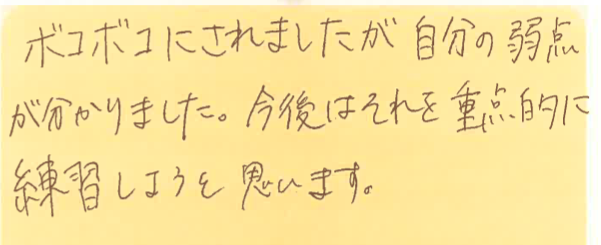 ボコボコにされましたが自分の弱点
が分かりました。今後はそれを重点的に
練習しようと思います。